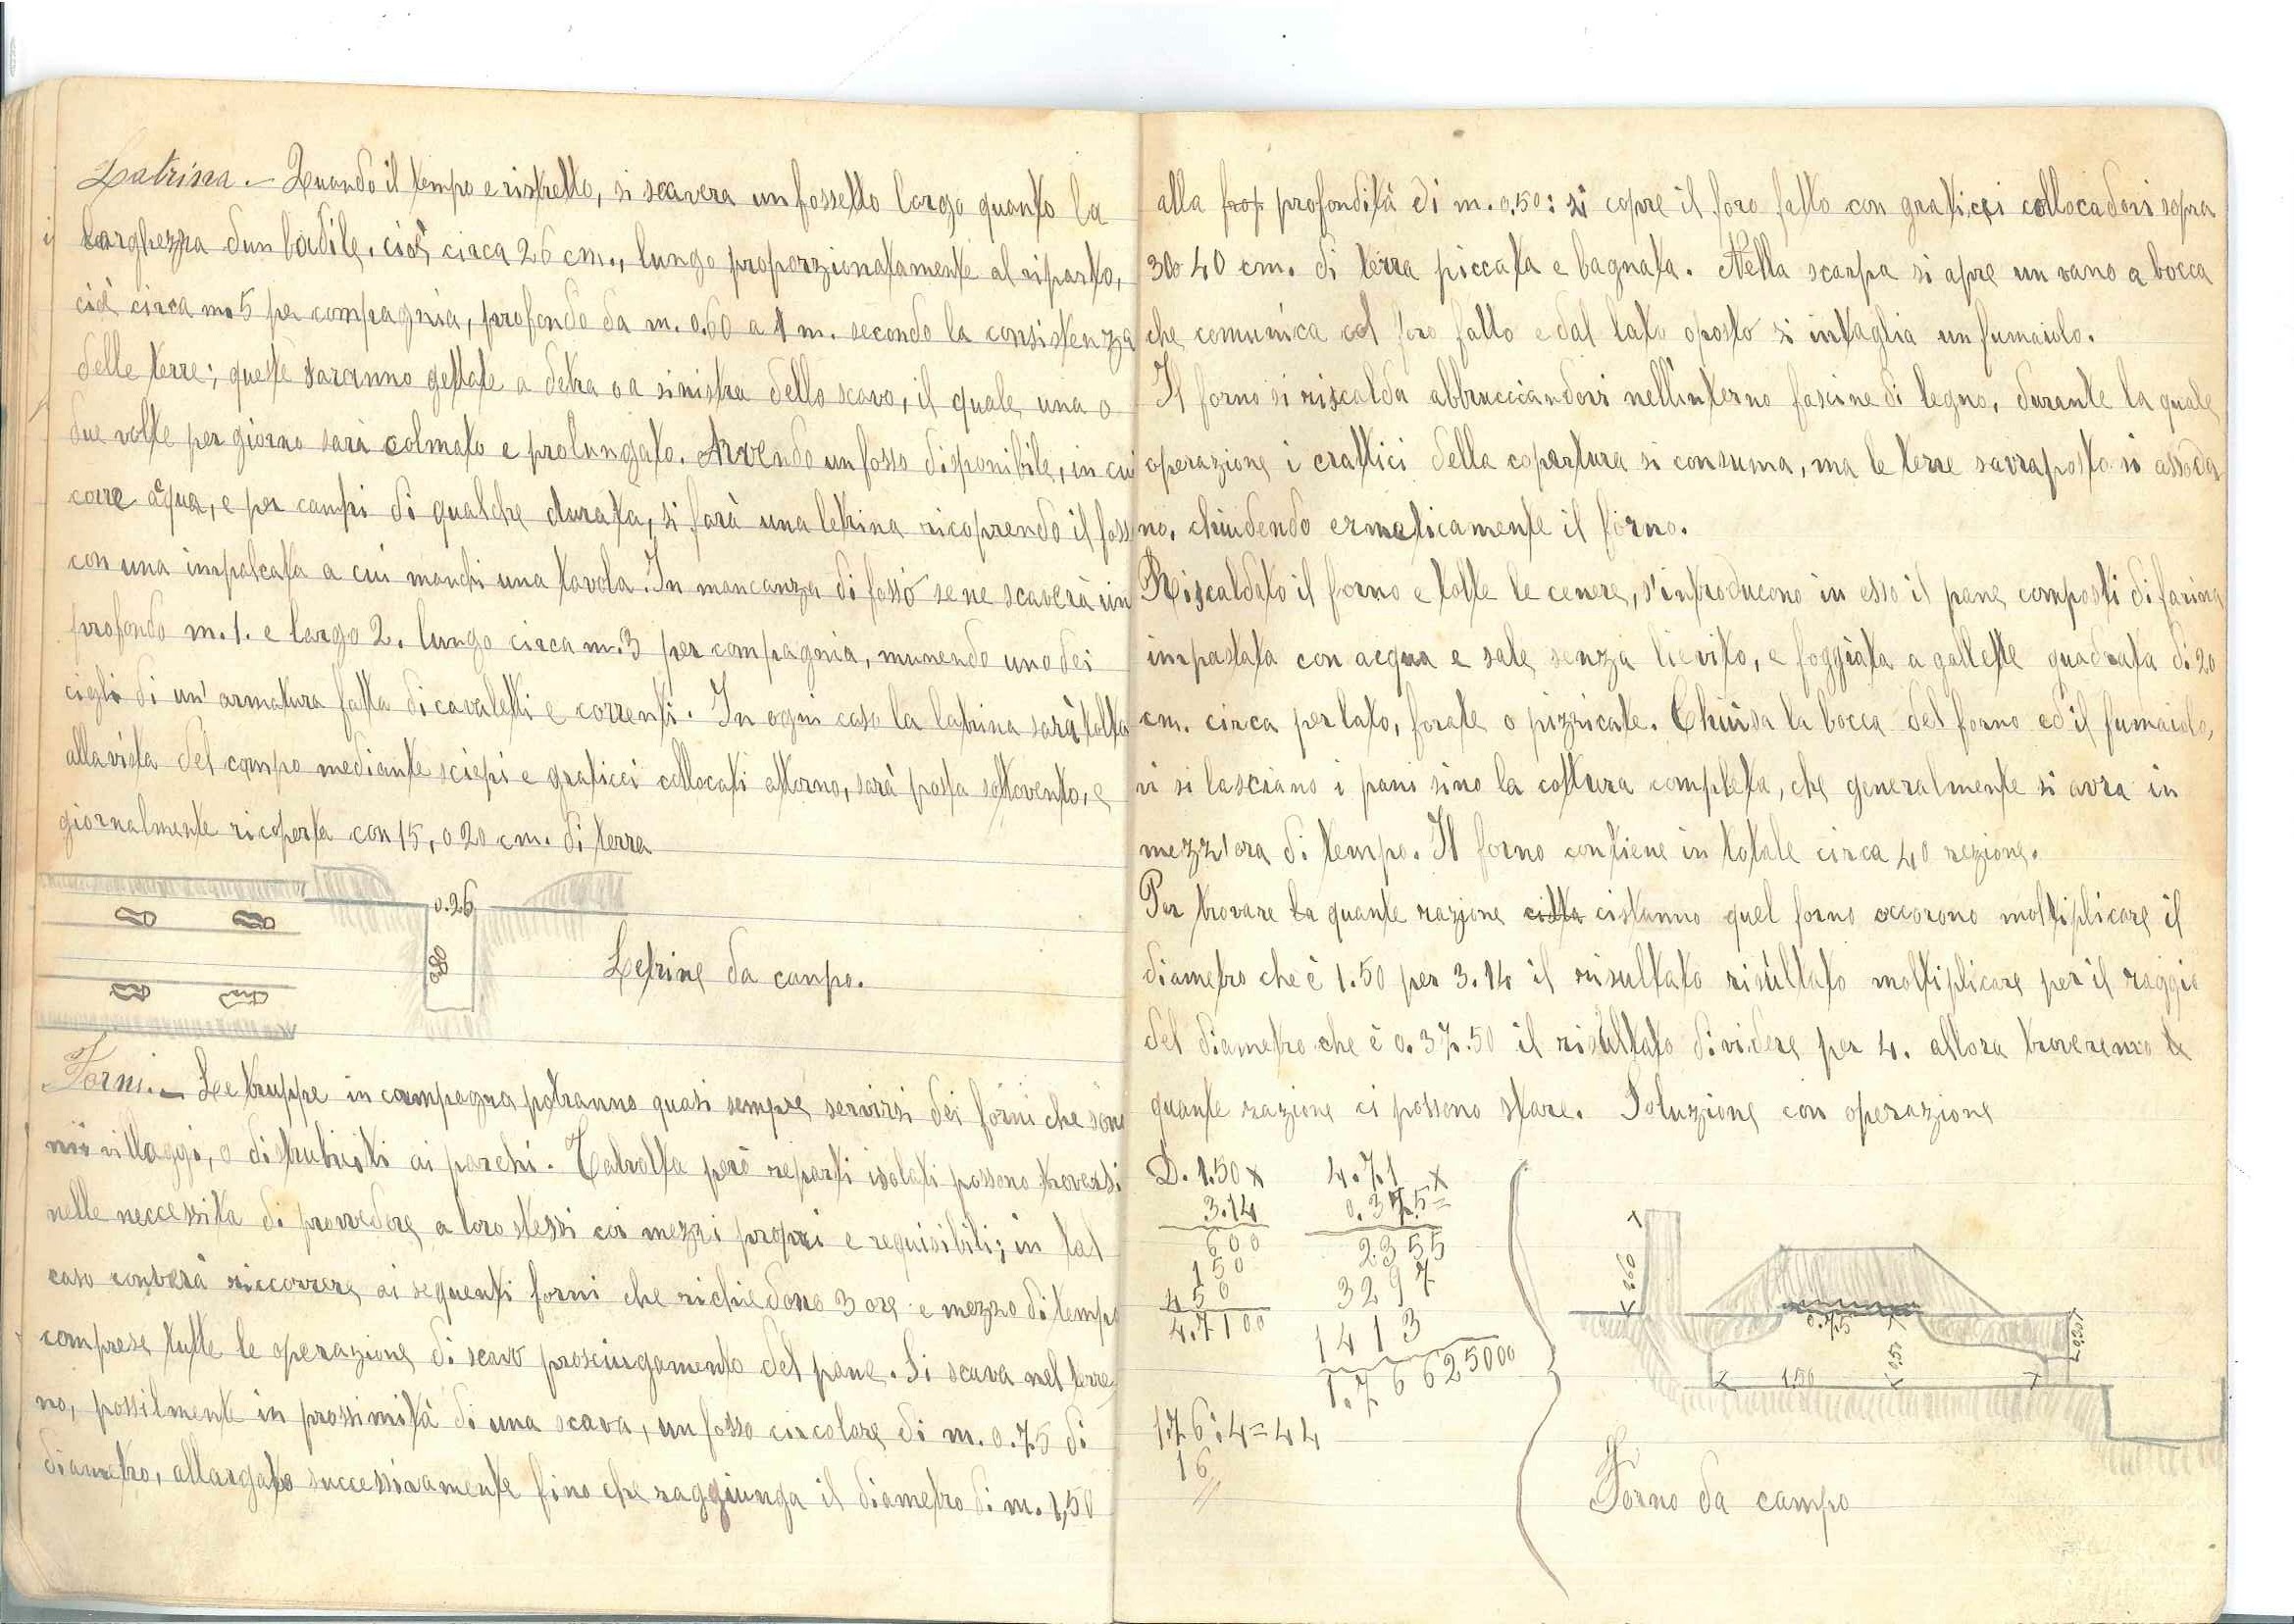 Latrina. – Quando il tempo e ristretto, si scavera un fossetto largo quanto la
larghezza dun badile, cioè, circa 26 cm., lungo proporzionatamente al riparto,
cioè circa m. 5 per compagnia, profondo da m. 0.60 a 1 m. secondo la consistenza
delle terre; queste saranno gettate a detra o a sinistra dello scavo, il quale, una o
due volte per giorno sarà colmato e prolungato. Avvendo un fosso disponibile, in cui
corre aqua, e per campi di qualche durata, si farà una letrina ricoprendo il fosso
con una impalcata a cui manchi una tavola. In mancanza di fosso se ne scaverà un
profondo m. 1. e largo 2. lungo circa m. 3 per compagnia, munendo uno dei
cigli di un' armatura fatta di cavaletti e correnti. In ogni caso la latrina sarà tolta
alla vista del campo mediante sciepi e graticci collocati attorno, sarà posta sottovento, e
giornalmente ricoperta con 15, o 20 cm. di terra
0.26
0.60
Letrine da campo.
Forni. – Le truppe in campagna potranno quasi sempre servirsi dei forni che sono
nii villaggi, o distrubuiti ai parchi. Talvolta però reparti isolati possono trovarsi
nelle neccessita di provvedere a loro stessi coi mezzi propri e requisibili; in tal
caso converà riccorrere ai sequenti forni che richiedono 3 ore e mezzo di tempo
comprese tutte le operazione di scavo prosciugamento del pane. Si scava nel terre
no, possilmente in prossimità di una scava, un fosso circolare di m. 0.75 di
diametro, allargato successivamente fino che raggiunga il diametro di m. 1,50
alla prop profondità di m. 0,50: si copre il foro fatto con graticci collocadovi sopra
30 o 40 cm. di terra piccata e bagnata. Nella scarpa si apre un vano a bocca
che comunica col foro fatto e dal lato oposto si intaglia un fumaiolo.
Il forno si riscalda abbrucciandovi nell'interno fascine di legno, durante la quale
operazione i crattici della copertura si consuma, ma le terre sovraposto si assoda
no, chiudendo ermeticamente il forno.
Riscaldato il forno e tolte le cenere, s'introducono in esso il pane composti di farina
impastata con acqua e sale senza lievito, e foggiata a gallette quadrata di 20
cm. circa per lato, forate o pizzicate. Chiusa la bocca del forno ed il fumaiolo,
vi si lasciano i pani sino la cottura completa, che generalmente si avra in
mezz'ora di tempo. Il forno contiene in totale circa 40 rezione.
Per trovare la quante razione cistanno quel forno occorono moltiplicare il
diametro che è 1.50 per 3.14 il risultato risultato moltiplicare per il raggio
del diametro che è 0.37.50 il risultato dividere per 4. allora troveremo le
quante razione ci possono stare. Soluzione con operazione
D. 1.50 x
3.14
600
150
450
4.7100
4.71 x
0.375=
2355
3297
1413
1.76625000
176:4=44
16
//
0.60
0.75
0.50
1.50
0.20
Forno da campo